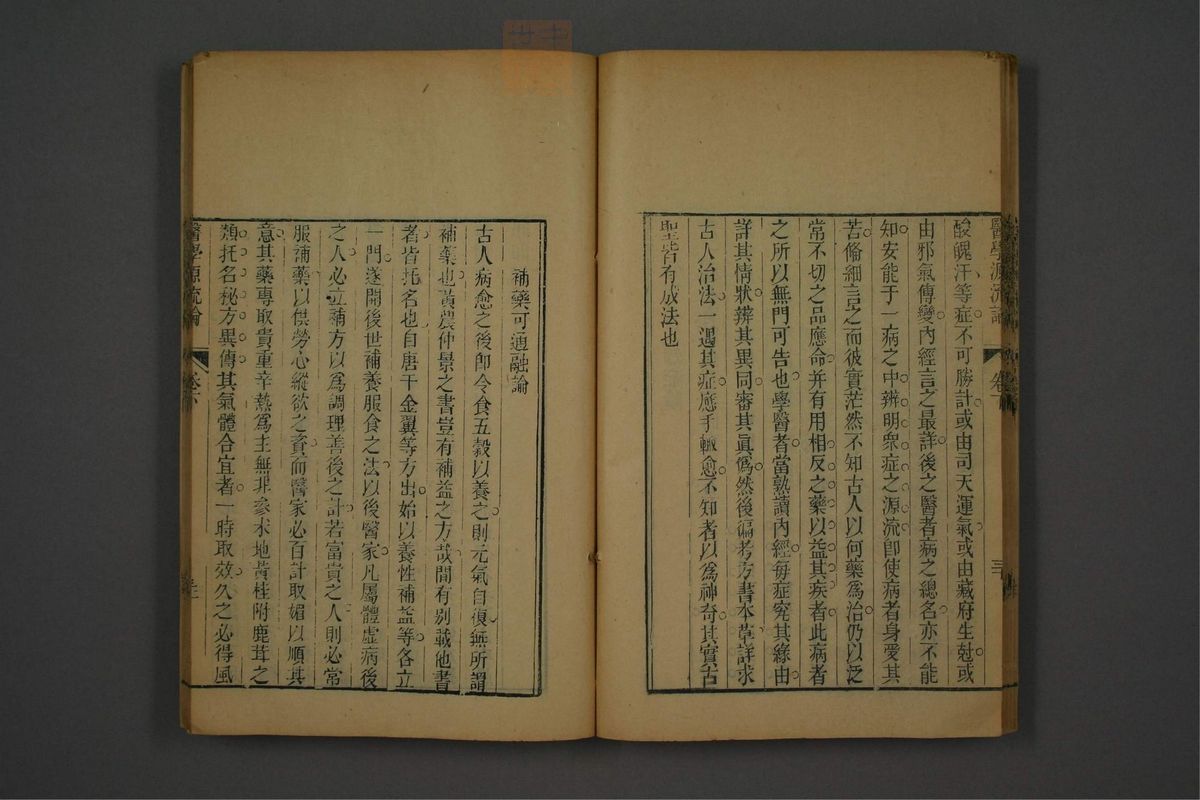 醫學源流論 卷下 三
酸䰟汗等症不可勝計或由司天運氣或由藏府生尅或
由邪氣傳變內經言之最詳後之醫者病之總名亦不能
知安能于一病之中辨明眾症之源流卽使病者身受其
苦備細言之而彼實茫然不知古人以何藥爲治仍以泛
常不切之品應命并有用相反之藥以益其疾者此病者
之所以無門可告也學醫者當熟讀內經每症究其緣由
詳其情狀辨其異同審其眞僞然後徧考方書本草詳求
古人治法一遇其症應手輒愈不知者以爲神奇其實古
聖皆有成法也
補藥可通融論
古人病愈之後卽令食五穀以養之則元氣自復無所謂
補藥也黃農仲景之書豈有補益之方哉間有別載他書
者皆托名也自唐千金翼等方出始以養性補益等各立
一門遂開後世補養服食之法以後醫家凡屬體虛病後
之人必立補方以爲調理善後之計若富貴之人則必常
服補藥以供勞心縱欲之資而醫家必百計取媚以順其
意其藥專取貴重辛熱爲主無非參朮地黃桂附鹿茸之
類托名秘方異傳其氣體合宜者一時取效久之必得風
醫學源流論 卷下